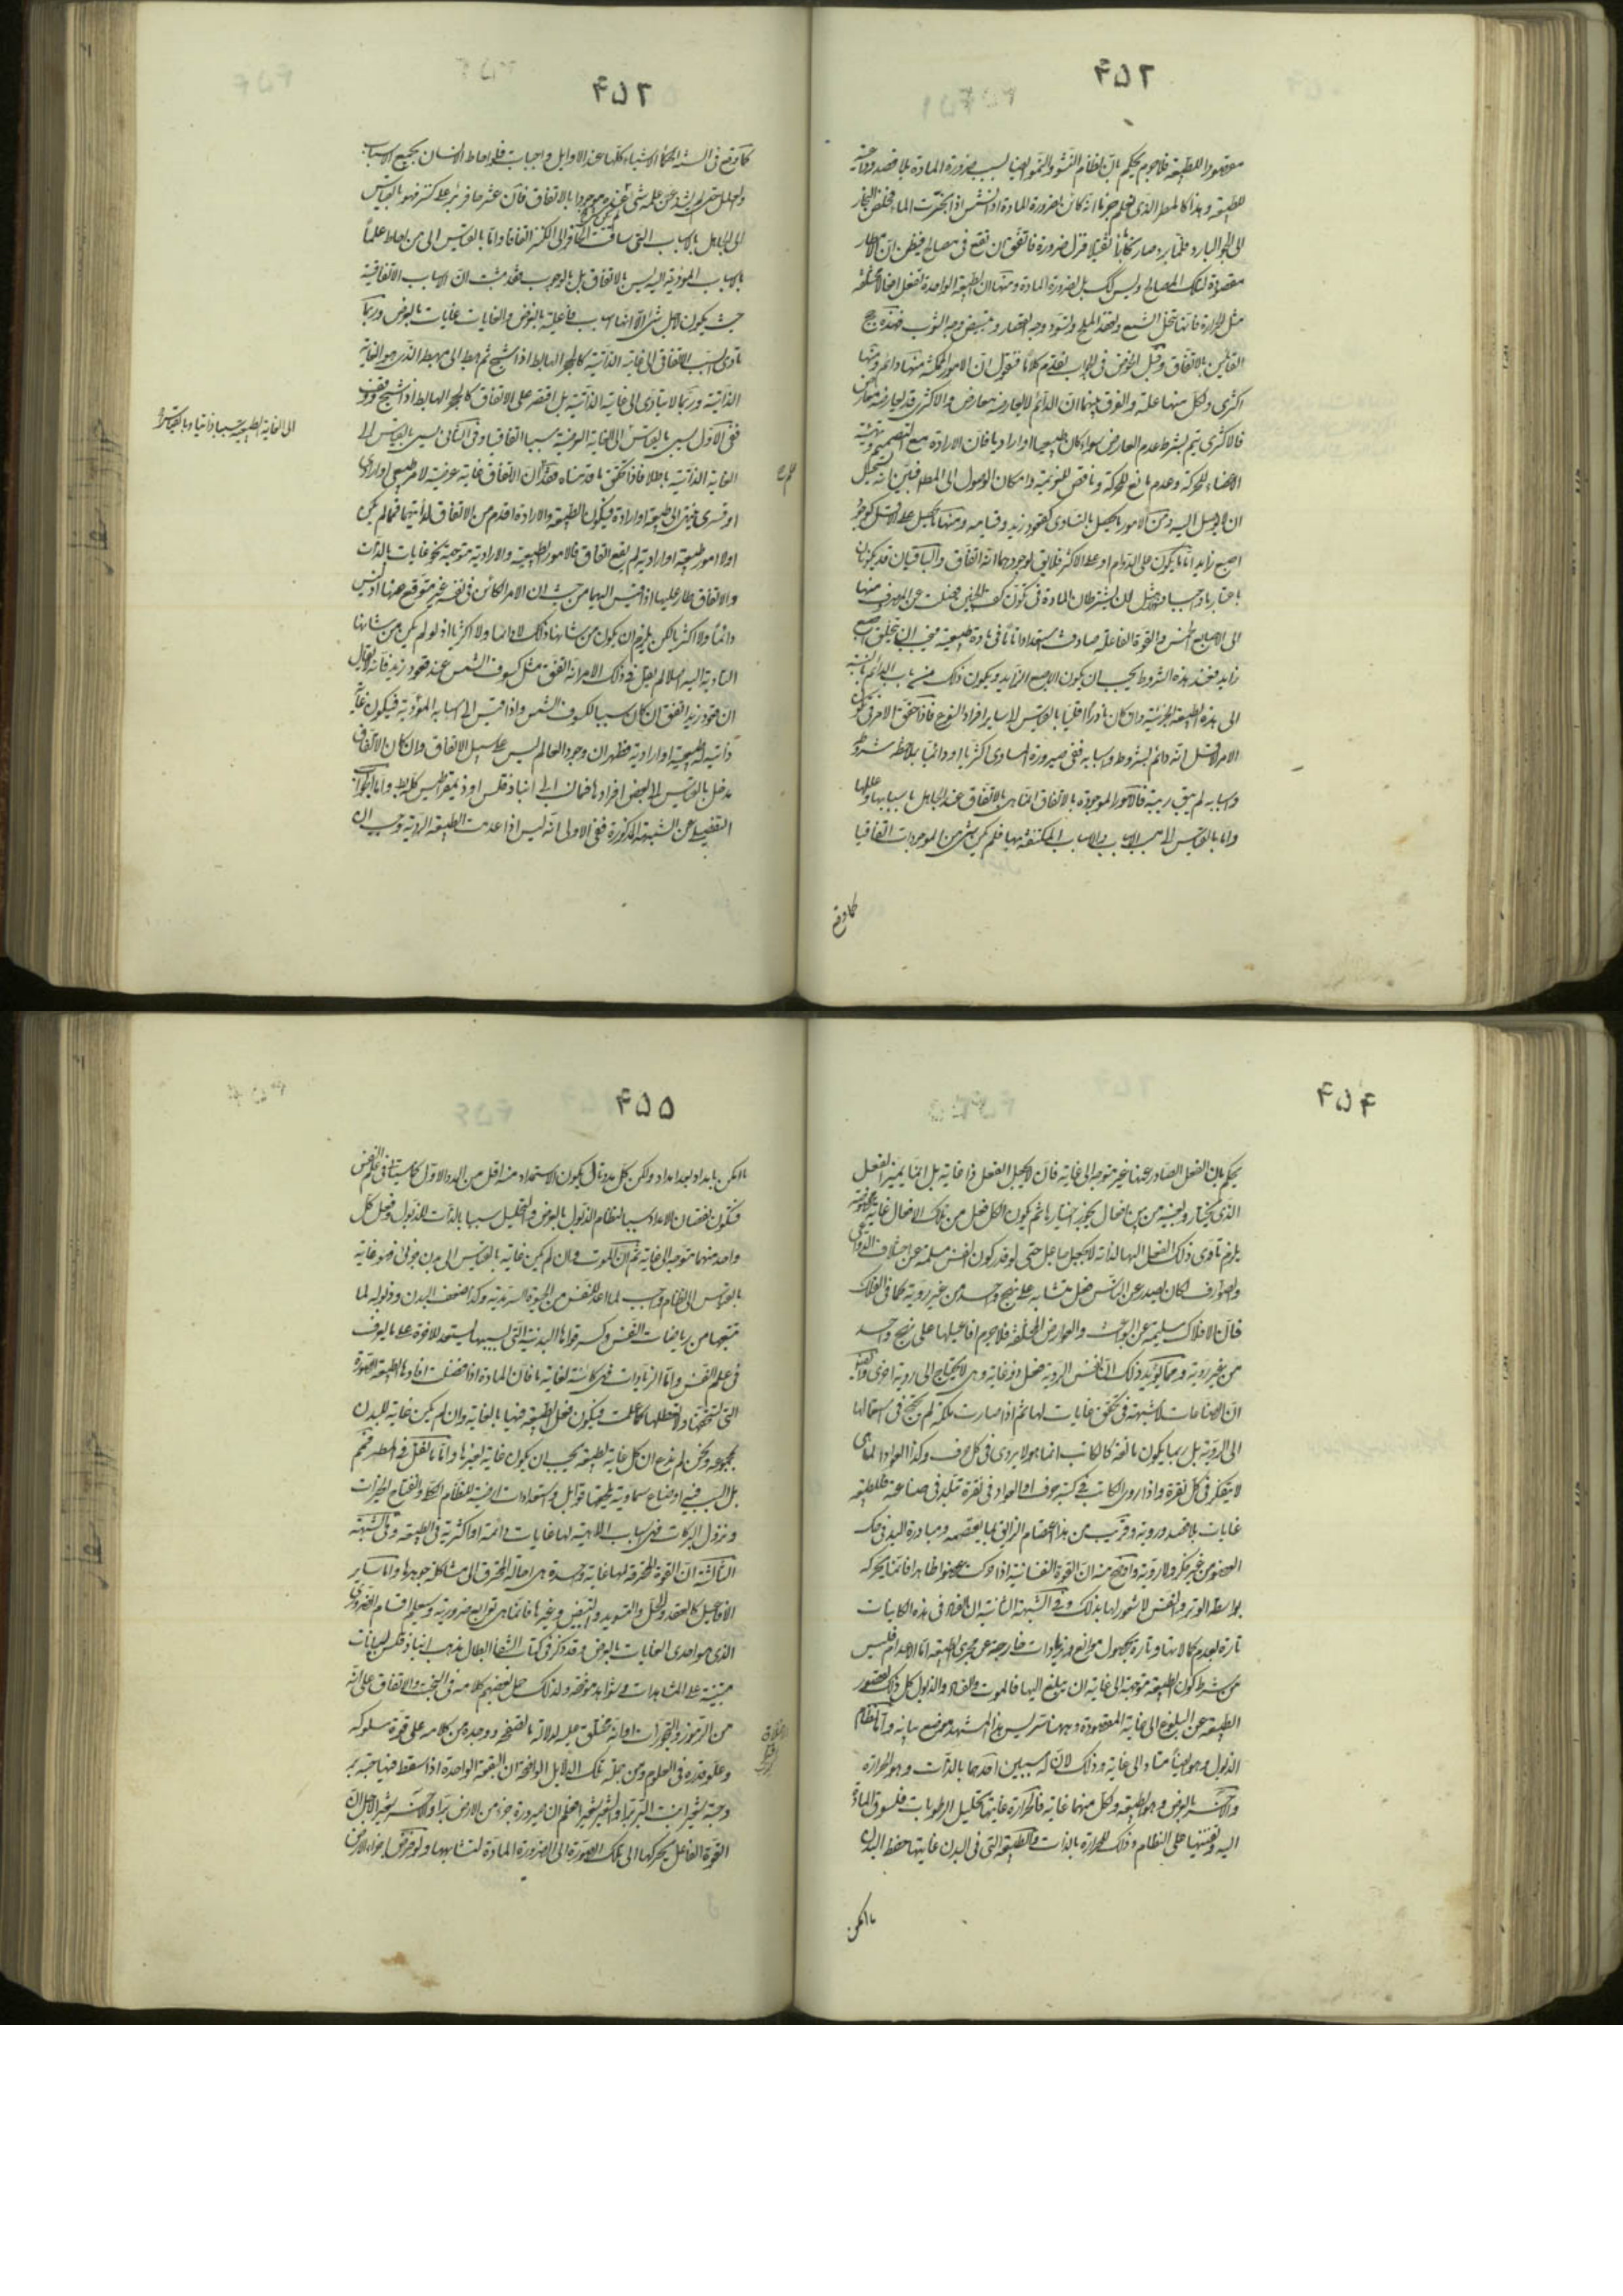 ۴۵۲
مقصودا للطبيعة فلاجرم يحكم بان نظام النشو والنمو ايضا بسبب ضرورة المادة بلا قصد وداعية
للطبيعة وهذا كالمطر الذى نعلم جزما انه كائن لضرورة المادة اذ الشمس اذا بخرت الماء فخلص البخار
الى الجو البارد فلما برد صار ماء ثقيلا فنزل ضرورة فاتفق ان يقع فى مصالح فيظن ان الامطار
مقصودة لتلك المصالح وليس كك بل لضرورة المادة ومنها ان الطبيعة الواحدة تفعل افعالا مختلفة
مثل الحرارة فانها تحل الشمع وتعقد الملح وتسود وجه القصار وتبيض وجه الثوب فهذه حجج
القائلين بالاتفاق وقبل الخوض فى الجواب نقدم كلاما فنقول ان الامور الممكنة منها دائم ومنها
اكثرى ولكل منها علة والفرق بينهما ان الدائم لا يعارضه معارض والاكثرى قد يعارضه معارض
فالاكثرى يتم بشرط عدم المعارض سواء كان طبيعيا او اراديا فان الارادة مع التصميم وتهيئة
الاعضاء للحركة وعدم مانع للحركة وناقض للعزيمة وامكان الوصول الى المطلوب فبين انه يستحيل
ان لا يوصل اليه ومن الامور ما يحصل بالتساوى كقعود زيد وقيامه ومنها ما يحصل على الاقل كوجود
اصبع زايد اما ما يكون على الدوام او على الاكثر فلا يق لوجودهما انه اتفاق والباقيان قد يكونان
باعتبار ما واجبا مثلا مثل ان يشترط ان المادة فى تكون كف الجنين فضلت عن المصروف منها
الى الاصابع الخمس والقوة الفاعلة صادفت استعدادا تاما فى مادة طبيعية فيجب ان تتخلق اصبع
زايد فعند هذه الشروط يجب ان يكون الاصبع الزايد ويكون ذلك من باب الدائم بالنسبة
الى هذه الطبيعة الجزئية وان كان نادرا اقليا بالقياس الى ساير افراد النوع فاذا حقق الامر فى تكون
الامر الاقلى انه دائم بشروط واسبابه ففى صيرورة المساوى اكثريا او دائميا بملاحظة شروطه
واسبابه لم يبق ريبة فالامور الموجودة بالاتفاق انما هى بالاتفاق عند الجاهل باسبابها وعللها
واما بالقياس الى مسبب الاسباب والاسباب المكتنفة بها فلم يكن شئ من الموجودات اتفاقيا
كما وقع
۴۵۳
كما وقع فى السنة الحكماء الاشياء كلها عند الاوايل واجبات فلو احاط الانسان بجميع الاسباب
والعلل حتى لم يشذ عن علمه شئ لم يكن شئ عنده موجودا بالاتفاق فان عثر حافر بئر على كنز فهو بالقياس
الى الجاهل بالاسباب التى ساقت الحافر الى الكنز اتفاق واما بالقياس الى من احاط علما
بالاسباب المؤدية اليه ليس بالاتفاق بل بالوجوب فقد ثبت ان الاسباب الاتفاقية
حيث يكون لاجل شئ الا انها اسباب فاعلية بالعرض والغايات غايات بالعرض وربما
يتادى السبب الاتفاقى الى غايته الذاتية كالحجر الهابط اذا شج ثم هبط الى مهبطه الذى هو الغاية
الذاتية وربما لا يتادى الى غايته الذاتية بل اقتصر على الاتفاقى كالحجر الهابط اذا شج ووقف
ففى الاول يسمى بالقياس الى الغاية العرضية سببا اتفاقيا وفى الثانى يسمى بالقياس الى
الغاية الذاتية باطلا فاذا تحقق ما قدمناه فقد علم ان الاتفاق غاية عرضية لامر طبيعى او ارادى
او قسرى ينتهى الى طبيعة او ارادة فيكون الطبيعة والارادة اقدم من الاتفاق لذاتيهما فما لم يكن
اولا امور طبيعية او ارادية لم يقع اتفاق فالامور الطبيعية والارادية متوجهة نحو غايات بالذات
والاتفاق طار عليها اذا قيس اليها من حيث ان الامر الكائن فى نفسه غير متوقع عنها اذ ليس
دائما ولا اكثريا لكن يلزم ان يكون من شانها ذلك لا دائما ولا اكثريا اذ لو لم يكن من شانها
التادية اليه اصلا لم يقل فى ذلك الامر انه اتفق مثل كسوف الشمس عند قعود زيد فانه لا يقال
ان قعود زيد اتفق ان كان سببا لكسوف الشمس واذا قيس الى اسبابه المؤدية فيكون غاية
ذاتية له طبيعية او ارادية فظهر ان وجود العالم ليس على سبيل الاتفاق وان كان للاتفاق
مدخل بالقياس الى بعض افراده فما نسب الى انباذقلس او ذيمقراطيس كله بط واما الجواب
التفصيلى عن الشبهة المذكورة ففى الاولى انه ليس اذا عدمت الطبيعة الروية وجب ان
الى الغاية الطبيعية سببا ذاتيا وبالقياس
۴۵۴
يحكم بان الفعل الصادر عنها غير متوجه الى غاية فان الروية لا تجعل الفعل ذا غاية بل انما يميز الفعل
الذى يختار ويعينه من بين افعال يجوز اختيارها ثم يكون لكل فعل من تلك الافعال غاية مخصوصة
يلزم تادى ذلك الفعل اليها لذاته لا بجعل جاعل حتى لو قدر كون النفس مسلمة عن اختلاف الدواعى
والصوارف لكان يصدر عن الناس فعل متشابه على نهج واحد من غير روية كما فى الفلك
فان الافلاك سليمة عن البواعث والعوارض المختلفة فلاجرم افاعيلها على نهج واحد
من غير روية ومما يؤيد ذلك ان نفس الروية فعل ذو غاية وهى لا يحتاج الى روية اخرى وايضا
ان الصناعات لا شبهة فى تحقق غايات لها ثم اذا صارت ملكة لم يحتج فى استعمالها
الى الروية بل ربما يكون مانعة كالكاتب الماهر لا يروى فى كل حرف وكذا العواد الماهر
لا يتفكر فى كل نقرة واذا روى الكاتب فى كتبة حرف او العواد فى نقرة تبلد فى صناعته فللطبيعة
غايات بلا قصد وروية وقريب من هذا اعتصام الزالق بما يعصمه ومبادرة اليد فى حك
العضو من غير فكر ولا روية واوضح منه ان القوة النفسانية اذا حركت عضوا ظاهرا فانما يحركه
بواسطة الوتر والنفس لا شعور لها بذلك وفى الشبهة الثانية ان الفساد فى هذه الكاينات
تارة لعدم كمالاتها وتارة بحصول موانع وزيادات خارجة عن مجرى الطبيعة اما الاعدام فليس
من شرط كون الطبيعة متوجهة الى غاية ان يبلغ اليها فالموت والفساد والذبول كل ذلك لقصور
الطبيعة عن البلوغ الى غاية المقصودة وههنا سر ليس هذا المشهد موضع بيانه واما نظام
الذبول وهو ايضا متاد الى غاية وذلك لان له سببين احدهما بالذات وهو الحرارة
والآخر بالعرض وهو الطبيعة ولكل منهما غاية فالحرارة غايتها تحليل الرطوبات فتسوق المادة
اليه وتفنيها على النظام وذلك للحرارة بالذات والطبيعة التى فى البدن غايتها حفظ البدن
ما امكن
۴۵۵
ما امكن بامداد بعد امداد ولكن كل مدد تال يكون الاستمداد منه اقل من المدد الاول كما سيتاتى فى علم النفس
فيكون نقصان الامداد سببا لنظام الذبول بالعرض والتحليل سببا بالذات للذبول وفعل كل
واحد منهما متوجه الى غاية ثم ان الموت وان لم يكن غاية بالقياس الى بدن جزئى فهو غاية
بالقياس الى نظام واجب لما اعد للنفس من الحيوة السرمدية وكذا ضعف البدن وذبوله لما
يتبعها من رياضات النفس وكسر قواها البدنية التى بسببها يستعد للاخرة على ما يعرف
فى علم النفس واما الزيادات فهى كائنة لغاية ما فان المادة اذا فضلت افادها الطبيعة الصورة
التى تستحقها ولا يعطلها كما علمت فيكون فعل الطبيعة فيها بالغاية وان لم يكن غاية للبدن
بمجموعه ونحن لم ندع ان كل غاية لطبيعة يجب ان يكون غاية لغيرها واما ما نقل فى المطر فمم
بل السبب فيه اوضاع سماوية يلحقها قوابل واستعدادات ارضية للنظام الكلى وانفتاح الخيرات
ونزول البركات فهى اسباب الالهية لها غايات دائمة او اكثرية فى الطبيعة وفى الشبهة
الثالثة ان القوة المحرقة لها غاية واحدة هى احالة المحترق الى مشاكلة جوهرها واما ساير
الافاعيل كالعقد والحل والتسويد والتبييض وغيرها فانما هى توابع ضرورية وستعلم اقسام الضرورى
الذى هو احدى الغايات بالعرض وقد ذكر فى كتاب الشفا ابطال مذهب انباذقلس ببيانات
مبتنية على المشاهدات وشواهد موضحة ولذلك حمل بعضهم كلامه فى البخت والاتفاق على انه
من الرموز والتجوزات او انه مختلق عليه لدلالة ما تصفحه ووجده من كلامه على قوة سلوكه
وعلو قدره فى العلوم ومن جملة تلك الدلايل الواضحة ان البقعة الواحدة اذا سقط فيها حبة بر
وحبة شعير انبت البر برا والشعير شعيرا فعلم ان صيرورة جزء من الارض برا والآخر شعيرا لاجل ان
القوة الفاعلة يحركها الى تلك الصورة لا لضرورة المادة لتشابهها ولو فرض اجزاء الارض